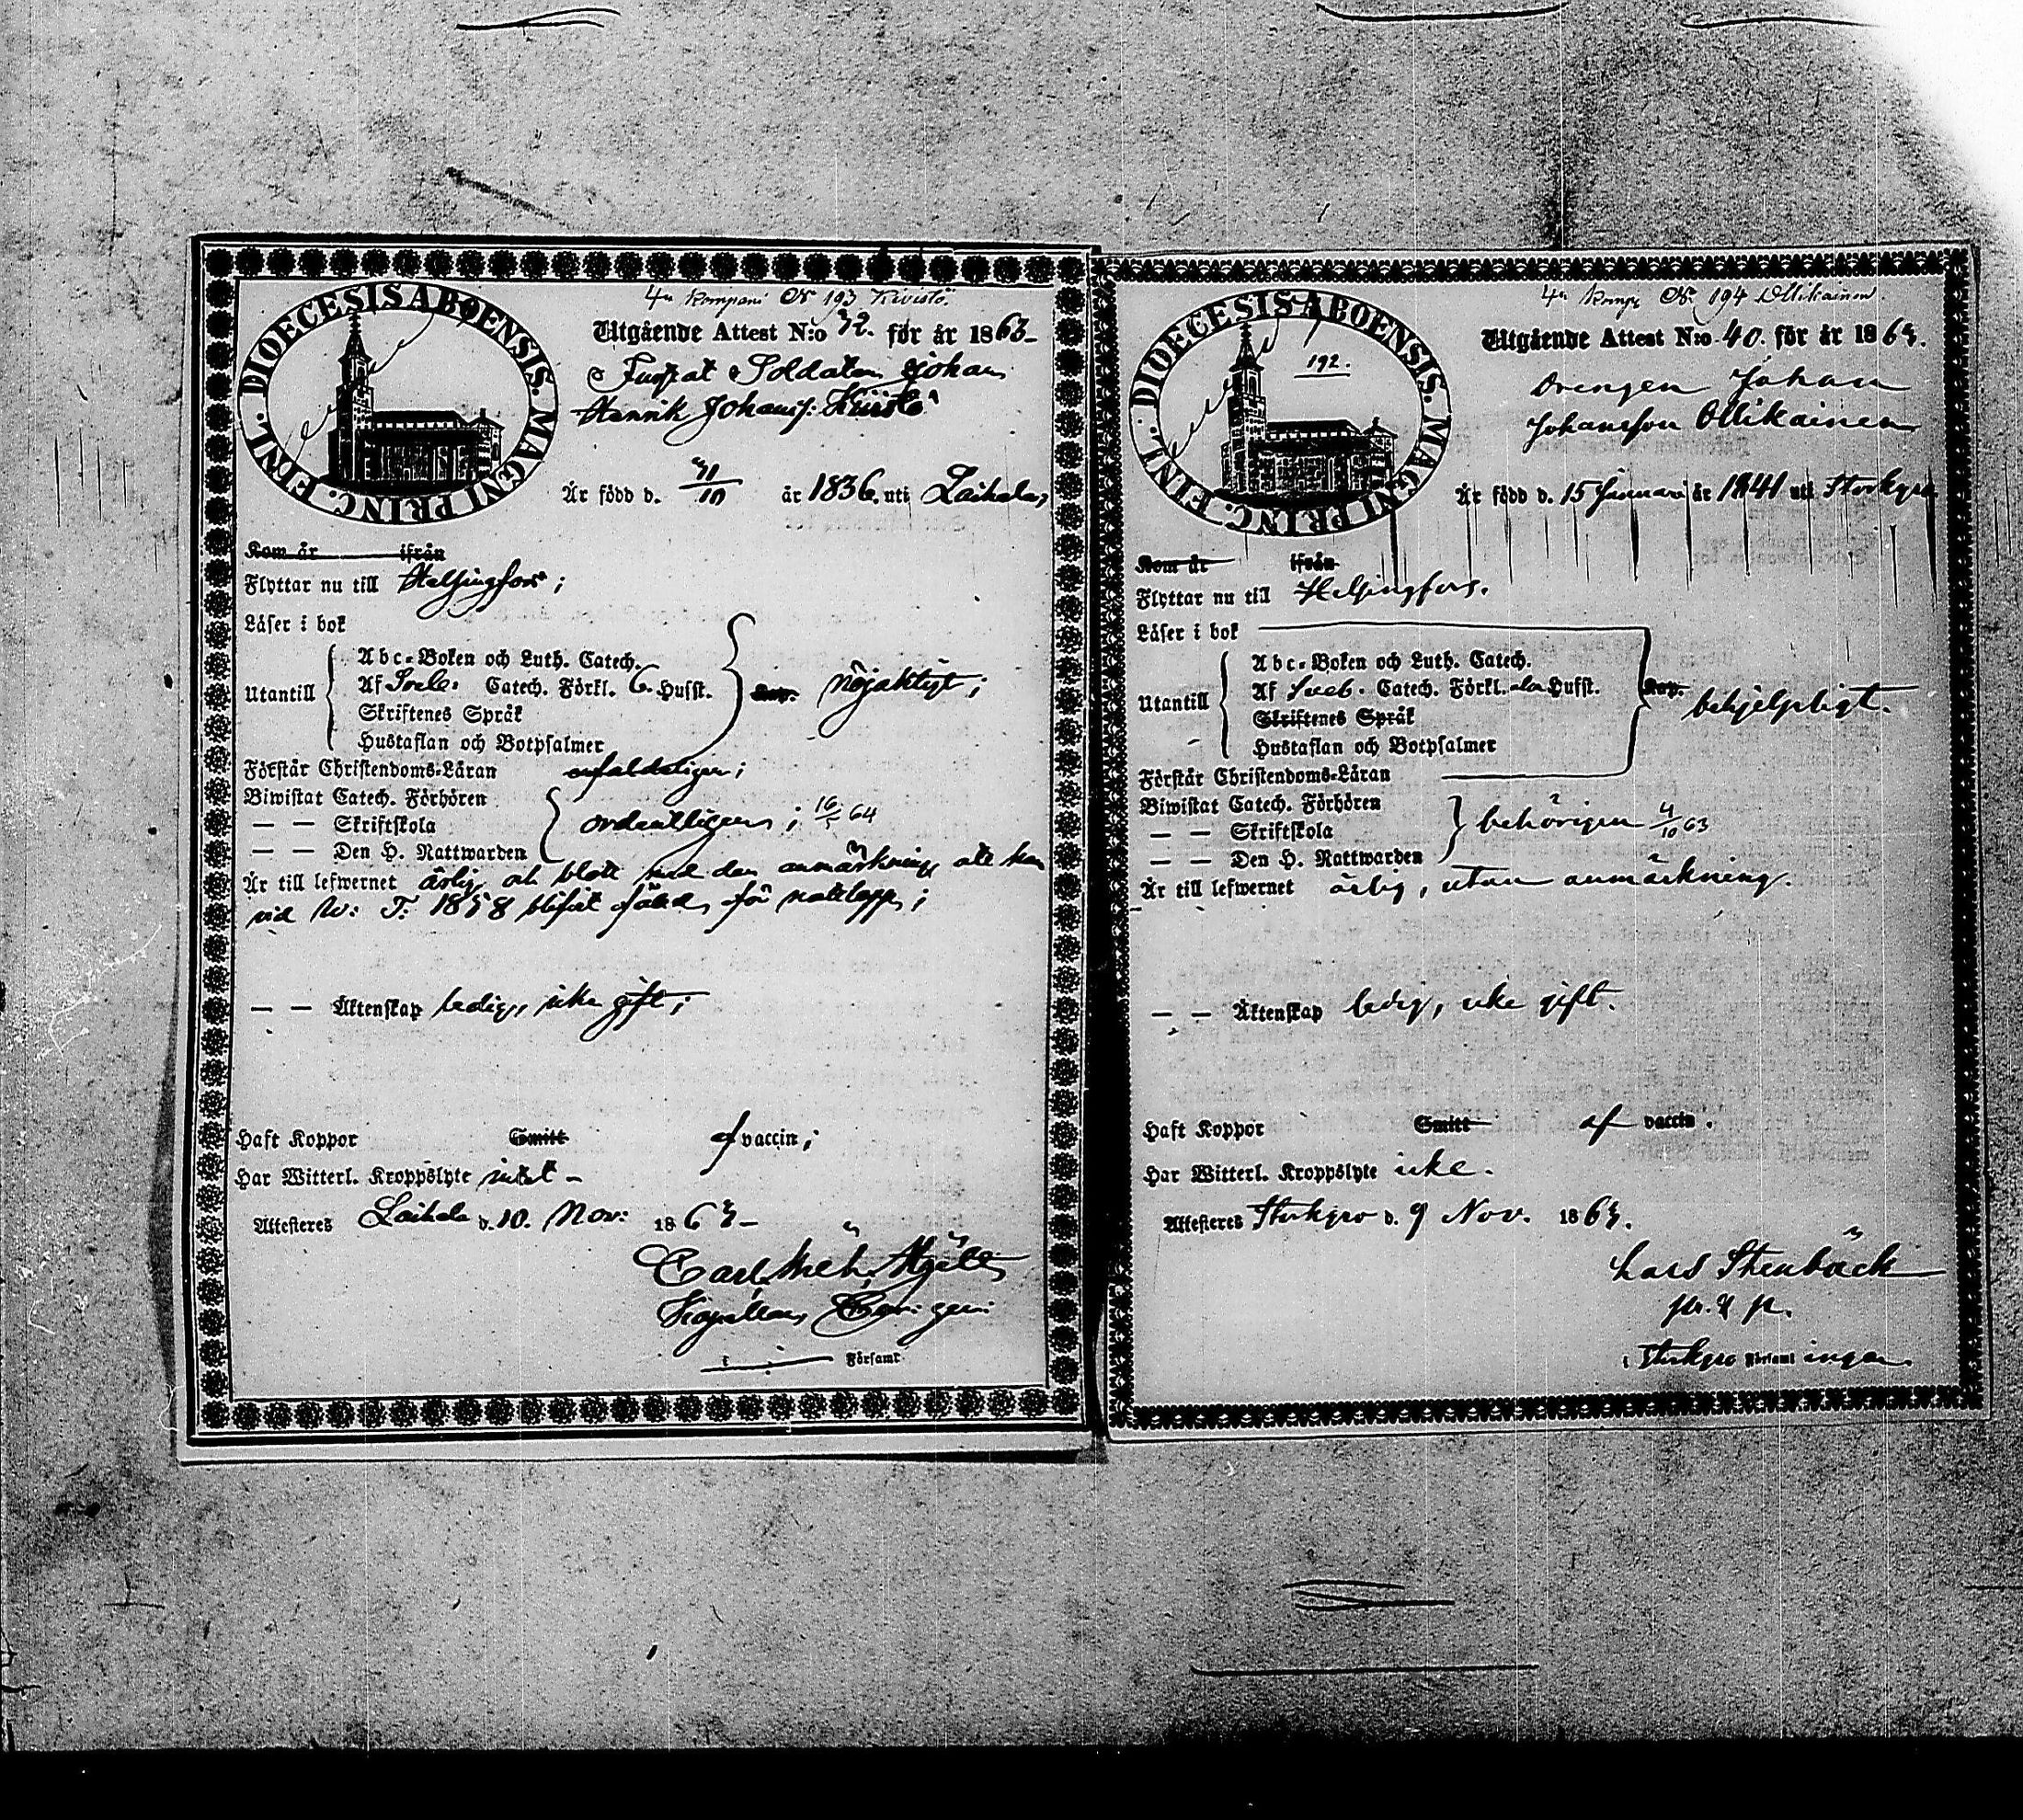 4de Kompani No 193 Kivistö.
DIOECESIS ABOENSIS. MAGNI PRINC. FINL.
Utgående Attest N:o 32. för år 1863
Soldaten Johan
Henrik Johans: Kivistö
Är född d. 31/10 år 1836. uti Laihela,
Kom år ifrån
Flyttar nu till Helsingfors;
Läser i bok
Utantill
Abc-Boken och Luth. Catech.
Af Sveb. Catech. Förkl. 6. Hufst.
Skriftenes Språk
Hustaflan och Botpsalmer
Rap. nöjaktigt;
Förstår Christendoms-Läran enfaldeligen;
Biwistat Catech. Förhören
— — Skriftskola
— — Den H. Nattwarden
ordentligen; 16/5 64
Är till lefwernet ärlig och blott med den anmärkning att han
vid W: T: 1858 blifvit fäld för nattlopp;
— — Äktenskap ledig, icke gift;
Haft Koppor Smitt af vaccin;
Har Witterl. Kroppslyte intet –
Attesteres Laihela d. 10. Nov: 1863 –
Carl
Kapellan
i Församl.
4de Komp. No. 194 Ollikainen.
DIOECESIS ABOENSIS. MAGNI PRINC. FINL.
192.
Utgående Attest N:o 40. för år 1863.
Drengen Johan
Johansson Ollikainen
Är född d. 15 Januari år 1841 uti Storkyro
Kom år ifrån
Flyttar nu till Helsingfors.
Läser i bok
Utantill
Abc-Boken och Luth. Catech.
Af Sveb. Catech. Förkl. Hufst.
Skriftenes Språk
Hustaflan och Botpsalmer
Rap. behjelpligt.
Förstår Christendoms-Läran
Biwistat Catech. Förhören
— — Skriftskola
— — Den H. Nattwarden
behörigen 4/10 63
Är till lefwernet ärlig, utan anmärkning.
— — Äktenskap ledig, icke gift.
Haft Koppor Smitt af vaccin.
Har Witterl. Kroppslyte icke.
Attesteres Storkyro d. 9 Nov. 1863.
Lars Stenbäck
i Storkyro Församl ingen.